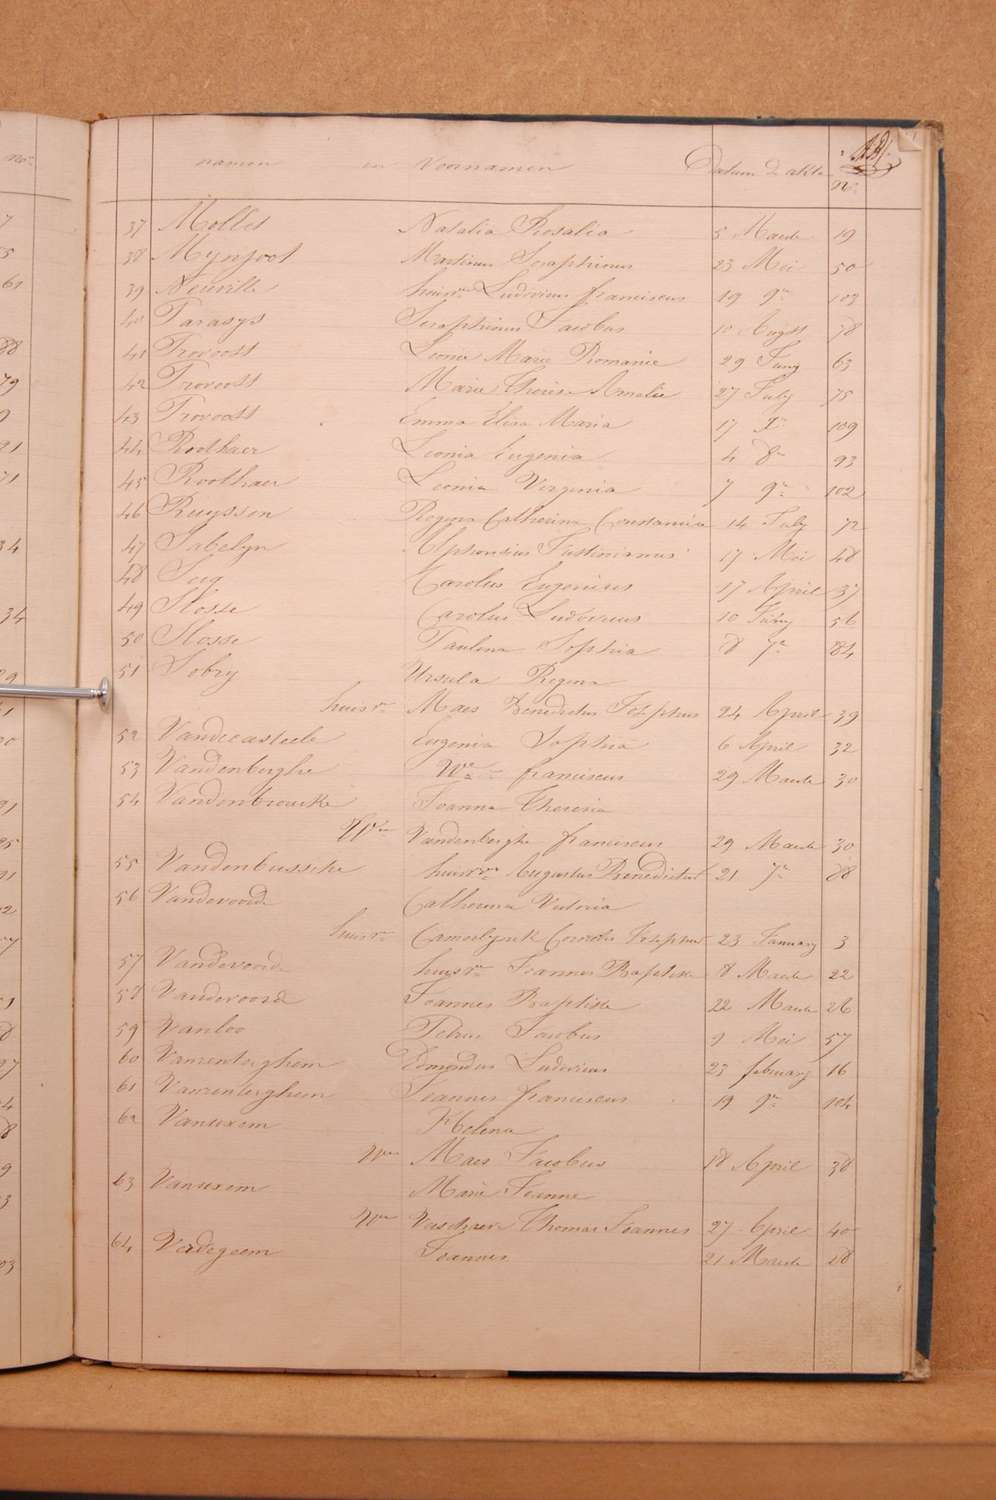 namen en Voornamen Datum d. akte No.
37 Mollet Natalia Rosalia 5 Maarte 19
38 Mynjoot Martinus Seraphinus 23 Mei 50
39 Neuville huisvr. Ludovicus franciscus 19 9r 103
40 Parasys Seraphinus Jacobus 10 Augst 78
41 Provoost Leonia Marie Romanie 29 Juny 63
42 Provoost Marie Therese Amelie 27 July 75
43 Provoost Emma Elisa Maria 17 Xr 109
44 Roothaer Leonia Eugenia 4 8r 93
45 Roothaer Leonia Virginia 7 9r 102
46 Ruyssen Regina Catherina Constantia 14 July 72
47 Sabelyn Alphonsius Justinianus 17 Mei 48
48 Seig Carolus Eugenius 17 April 37
49 Slosse Carolus Ludovicus 10 Juny 56
50 Slosse Paulina Sophia 8 7r 84
51 Sobry Ursula Regina
huisvr. Maes Benedictus Josephus 24 April 39
52 Vandecasteele Eugenia Sophia 6 April 32
53 Vandenberghe We franciscus 29 Maarte 30
54 Vandenbroucke Joanna Theresia
We Vandenberghe franciscus 29 Maarte 30
55 Vandenbussche huisvr. Augustus Benedictus 21 7r 88
56 Vandevoorde Catherina Victoria
huisvr. Camerlynck Carolus Josephus 23 January 3
57 Vandevoorde huisvr. Joannes Baptiste 8 Maarte 22
58 Vandevoorde Joannes Baptiste 22 Maarte 26
59 Vanloo Petrus Jacobus 9 Mei 57
60 Vanrenterghem Edmondus Ludovicus 23 february 16
61 Vanrenterghem Joannes franciscus 19 9r 104
62 Vanuxem Helena
We Maes Jacobus 18 April 38
63 Vanuxem Marie Jeanne
We Vaschaere Thomas Joannes 27 April 40
64 Vadegeem Joannes 21 Maarte 28